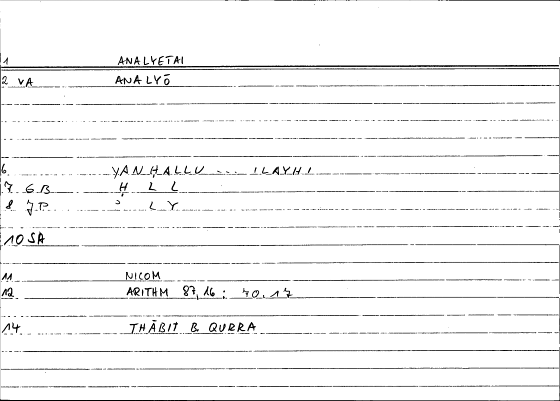 1 ANALYETAI
2 VA ANALYŌ
6 YANḤALLU ... ILAYHI
7 GB Ḥ L L
8 JP ʾ L Y
10 SA
11 NICOM
12 ARITHM 87,16 : 70.17
14 THĀBIT B QURRA